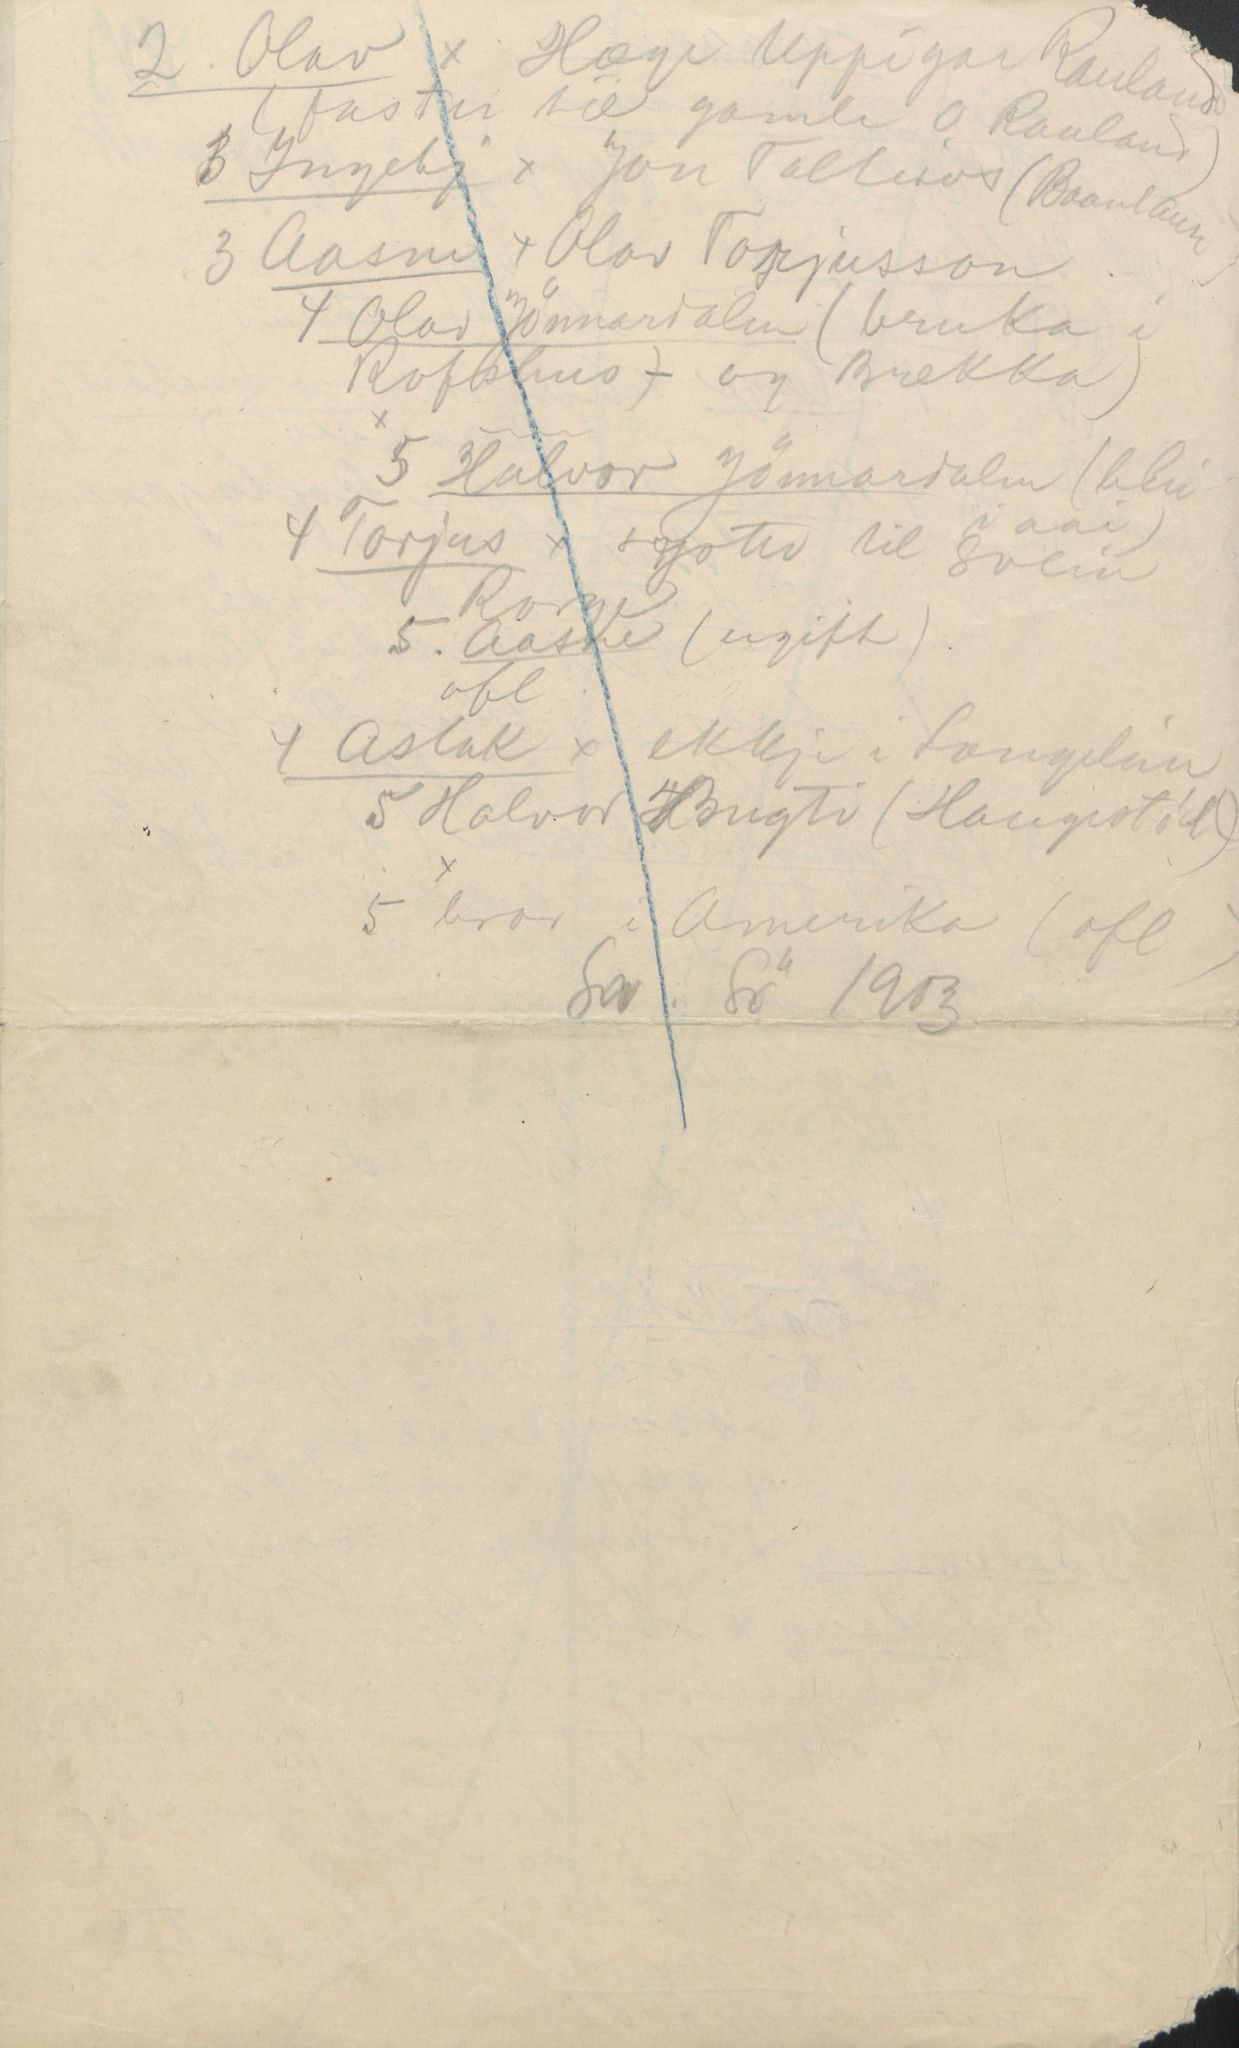 2. Olav x Hæge Uppigar Rauland
(faster til gamle O Rauland)
3 Ingebj x Jon Tallivs (Baanlaun)
3 Aasne x Olav Torjusson
4 Olav Jönnardalen (bruka i
Rofshus) og Brekka)
x
5 Halvor Jönnardalen (blei
i aai)
4 Torjus x syster til Svein
Rorge
5. Aasne (ugift)
ofl
4 Aslak x ekkje i Langelim
5 Halvor Bugti (Haugestöl)
x
5 bror i Amerika (ofl)
1903